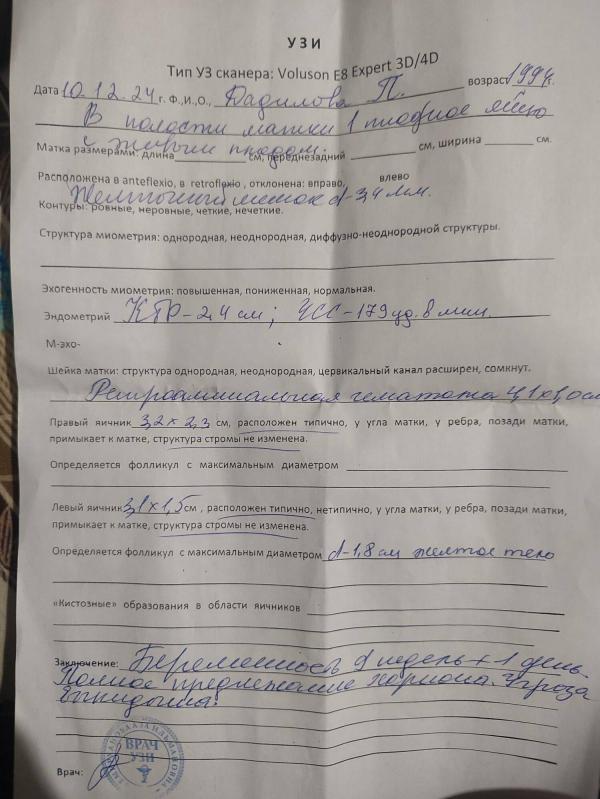 УЗИ
Тип УЗ сканера: Voluson E8 Expert 3D/4D
Дата 10.12.24 г. Ф.,И.,О., Дадилова П. возраст 1994 г.
В полости матки 1 плодное яйцо
с живым плодом.
Матка размерами: длина см, переднезадний см, ширина см.
Расположена в anteflexio, в retroflexio, отклонена: вправо, влево
Желточный мешок d-3,4 мм.
Контуры: ровные, неровные, четкие, нечеткие.
Структура миометрия: однородная, неоднородная, диффузно-неоднородной структуры.
Эхогенность миометрия: повышенная, пониженная, нормальная.
Эндометрий КТР-2,4 см; ЧСС-179 уд. в мин.
М-эхо-
Шейка матки: структура однородная, неоднородная, цервикальный канал расширен, сомкнут.
Ретроамниальная гематома 4,1х1,0 см
Правый яичник 3,2 х 2,3 см, расположен типично, у угла матки, у ребра, позади матки,
примыкает к матке, структура стромы не изменена.
Определяется фолликул с максимальным диаметром
Левый яичник 3,1 х 1,5 см, расположен типично, нетипично, у угла матки, у ребра, позади матки,
примыкает к матке, структура стромы не изменена.
Определяется фолликул с максимальным диаметром d-1,8 см желтое тело
«Кистозные» образования в области яичников
Заключение: Беременность 9 недель + 1 день.
Полное предлежание хориона. Угроза
выкидыша!
ВРАЧ
УЗИ
Врач: